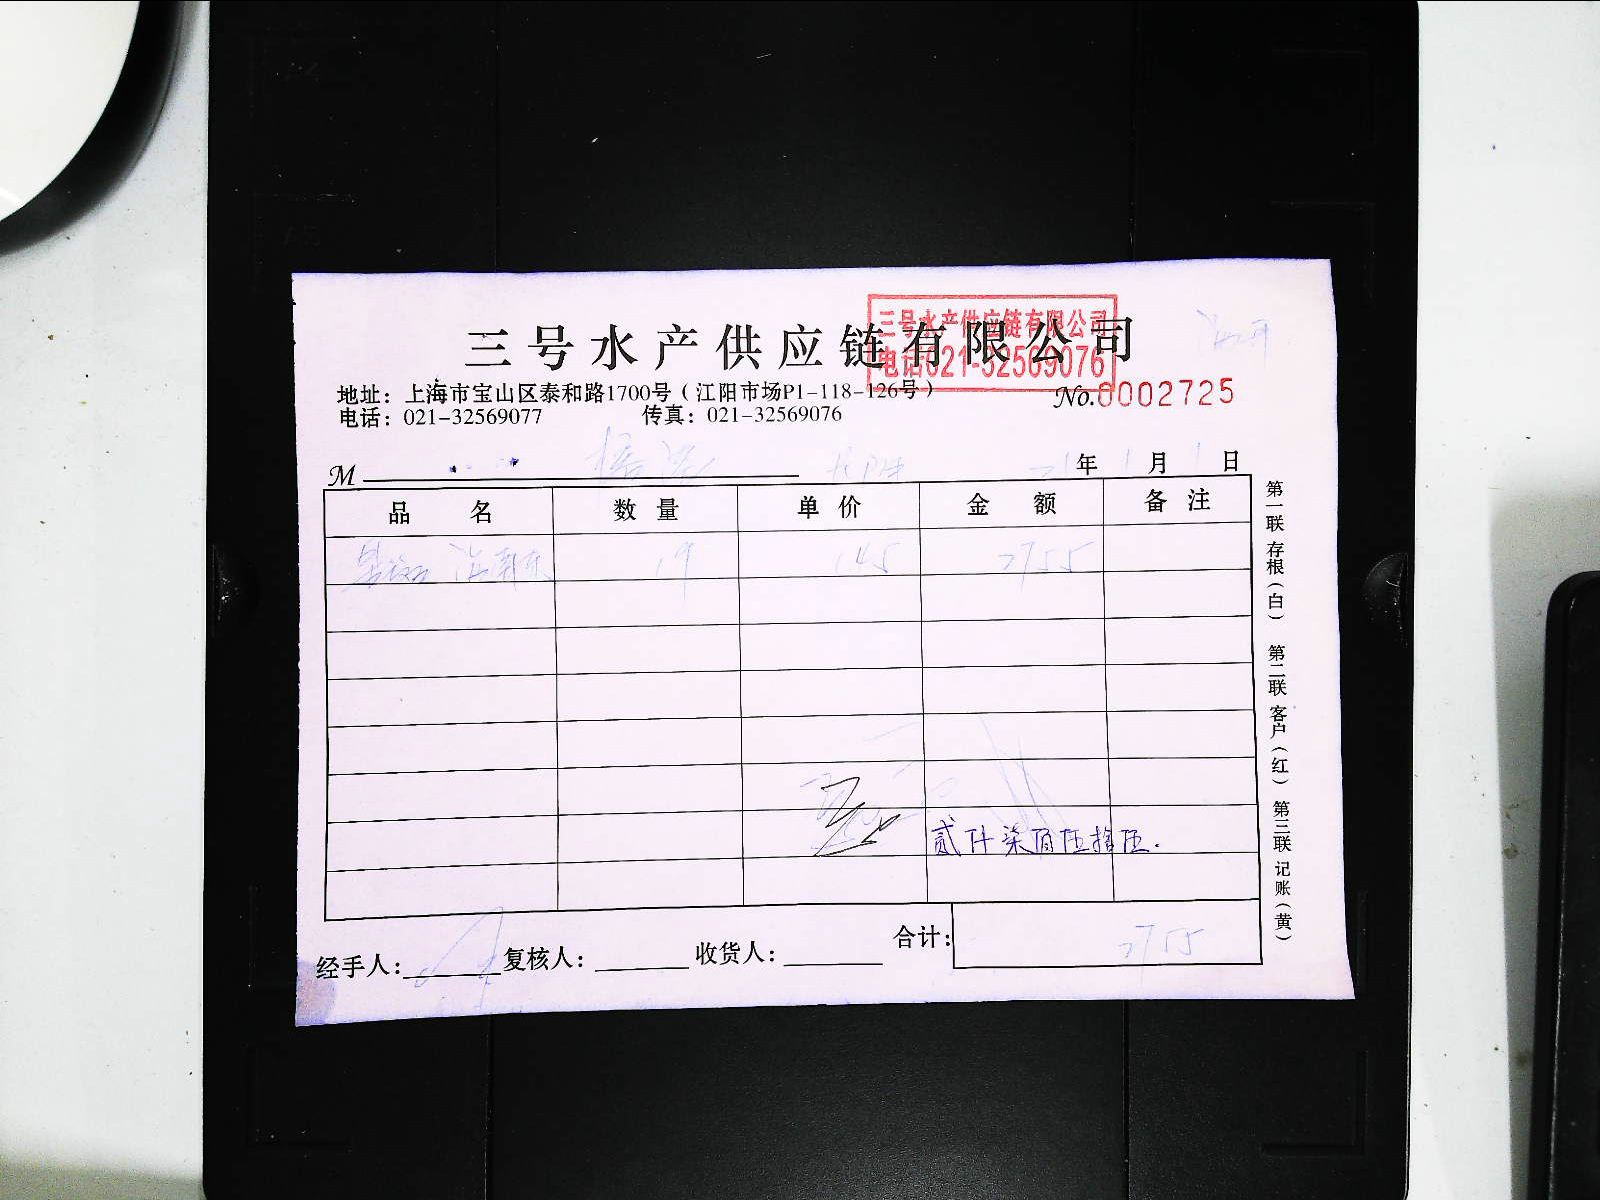 三号水产供应链有限公司
三号水产供应链有限公司
电话021-32569076
地址：上海市宝山区泰和路1700号（江阳市场P1-118-126号）
No.0002725
电话：021-32569077 传真：021-32569076
M 21年 1月 1日
品名 数量 单价 金额 备注
19 145 2755
贰仟柒佰伍拾伍.
经手人： 复核人： 收货人： 合计： 2755
第一联 存根（白） 第二联 客户（红） 第三联 记账（黄）